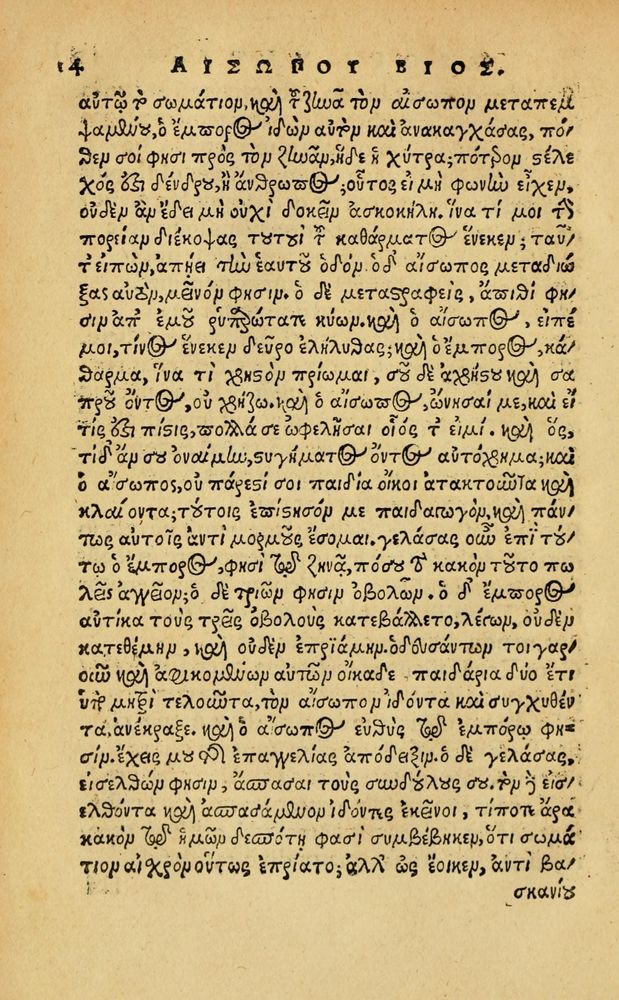 14 ΑΙΣΩΠΟΥ ΒΙΟΣ.
αὐτῷ τὸ σωμάτιον, καὶ τοῦ ζωᾶ τὸν αἴσωπον μεταπεμ
ψαμένου, ὁ ἔμπορος ἰδὼν αὐτὸν καὶ ἀνακαγχάσας, πό/
θεν σοί φησι πρὸς τὸν ζωᾶν, ἥδε ἡ χύτρα; πότερον στέλε
χός ὅτι δένδρου, ἢ ἄνθρωπος; οὗτος εἰ μὴ φωνὴν εἶχεν,
οὐδὲν ἂν ἔδει μὴ οὐχὶ δοκεῖν ἀσκοκήλη. ἵνα τί μοι τὴν
πορείαν διέκοψας τουτουῒ τοῦ καθάρματος ἕνεκεν; ταῦ/
τ' εἰπὼν, ἀπῄει τὴν ἑαυτοῦ ὁδόν. ὁ δ' αἴσωπος μεταδιώ
ξας αὐτὸν, μεῖνόν φησιν. ὁ δὲ μεταστραφεὶς, ἄπιθι φη/
σὶν ἀπ' ἐμοῦ ῥυπαρώτατε κύων. καὶ ὁ αἴσωπος, εἰπέ
μοι, τίνος ἕνεκεν δεῦρο ἐλήλυθας; καὶ ὁ ἔμπορος, κά/
θαρμα, ἵνα τὶ χρηστὸν πρίωμαι, σοῦ δὲ ἀχρήστου καὶ σα
προῦ ὄντος, οὐ χρῄζω. καὶ ὁ αἴσωπος, ὤνησαί με, καὶ εἴ
τίς ὅτι πίστις, πολλά σε ὠφελῆσαι οἷός τ' εἰμί. καὶ ὃς,
τί δ' ἄν σου ὀναίμην, στυγήματος ὄντος αὐτόχρημα; καὶ
ὁ αἴσωπος, οὐ πάρεστί σοι παιδία οἴκοι ἀτακτοῦντα καὶ
κλαίοντα; τούτοις ἐπίστησόν με παιδαγωγὸν, καὶ πάν/
τως αὐτοῖς ἀντὶ μορμοῦς ἔσομαι. γελάσας οὖν ἐπὶ τού/
τῳ ὁ ἔμπορος, φησὶ τῷ ζηνᾷ, πόσου τὸ κακὸν τοῦτο πω
λεῖς ἀγγεῖον; ὁ δὲ τριῶν φησιν ὀβολῶν. ὁ δ' ἔμπορος
αὐτίκα τοὺς τρεῖς ὀβολοὺς κατεβάλλετο, λέγων, οὐδὲν
κατεθέμην, καὶ οὐδὲν ἐπριάμην. ὁδευσάντων τοιγαρ/
οῦν καὶ ἀφικομένων αὐτῶν οἴκαδε παιδάρια δύο ἔτι
ὑπὸ μητρὶ τελοῦντα, τὸν αἴσωπον ἰδόντα καὶ συγχυθέν
τα, ἀνέκραξε. καὶ ὁ αἴσωπος εὐθὺς τῷ ἐμπόρῳ φη=
σίν. ἔχεις μου τῆς ἐπαγγελίας ἀπόδειξιν. ὁ δὲ γελάσας,
εἰσελθών φησιν, ἄσπασαι τοὺς συνδούλους σου. τὸν δὲ εἰσ/
ελθόντα καὶ ἀσπασάμενον ἰδόντες ἐκεῖνοι, τί ποτε ἄρα
κακὸν τῷ ἡμῶν δεσπότῃ φασὶ συμβέβηκεν, ὅτι σωμά
τιον αἰσχρὸν οὕτως ἐπρίατο; ἀλλ' ὡς ἔοικεν, ἀντὶ βα/
σκανίου